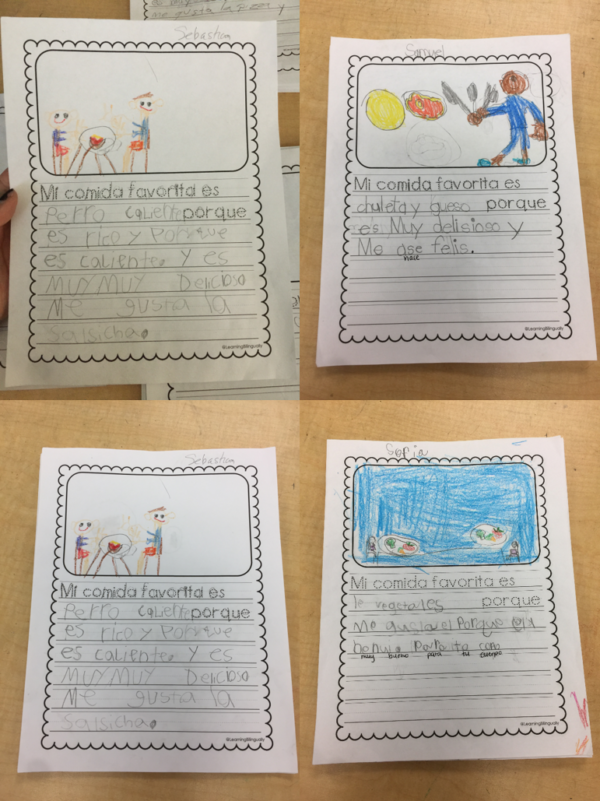 me gusta la y
Sebastian
Mi comida favorita es
Perro caliente porque
es rico y Porque
es caliente, y es
MUY MUY Delicioso
Me gusta la
Salsicha.
©LearningBilingually
Samuel
Mi comida favorita es
chuleta y queso porque
es Muy delisioso y
Me ase felis.
hace
©LearningBilingually
Sebastian
Mi comida favorita es
Perro caliente porque
es rico y Porque
es caliente, y es
MUY MUY Delicioso
Me gusta la
Salsicha.
©LearningBilingually
Sofia
Mi comida favorita es
le vegetales porque
Me gusta el Porque
muy bueno para tu cuerpo
©LearningBilingually